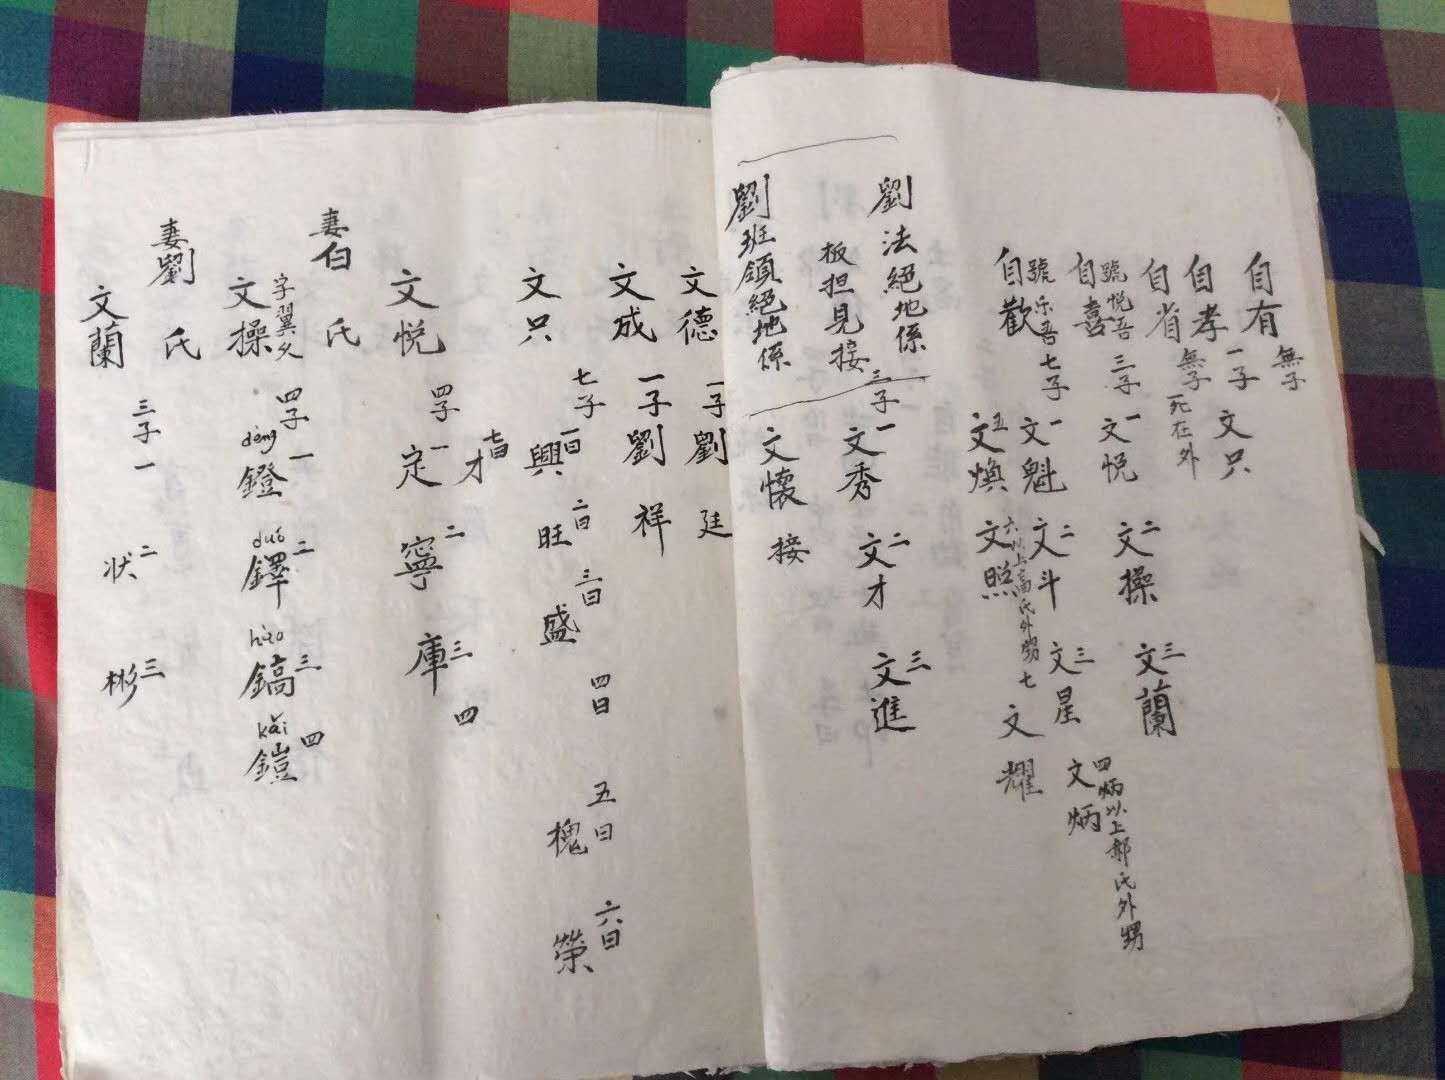 自有 無子
自孝 一子 文只
自省 無子 死在外
自喜 號悦吾 三子 一文悦 二文操 三文蘭
自歡 號乐吾 七子 一文魁 二文斗 三文星 四文炳 炳以上郝氏外甥
五文煥 六文照 以上高氏外甥 七文耀
劉法絕地係
板担見接 三子 一文秀 二文才 三文進
劉班領絕地係
文懷 接
文德 一子 劉廷
文成 一子 劉祥
文只 七子 一曰興 二曰旺 三曰盛 四曰 五曰槐 六曰榮
七曰才
文悦 四子 一定 二寧 三庫 四
妻白氏
文操 字翼父 四子 一鐙 dèng 二鐸 duó 三鎬 hào 四鎧 kǎi
妻劉氏
文蘭 三子 一 二状 三彬